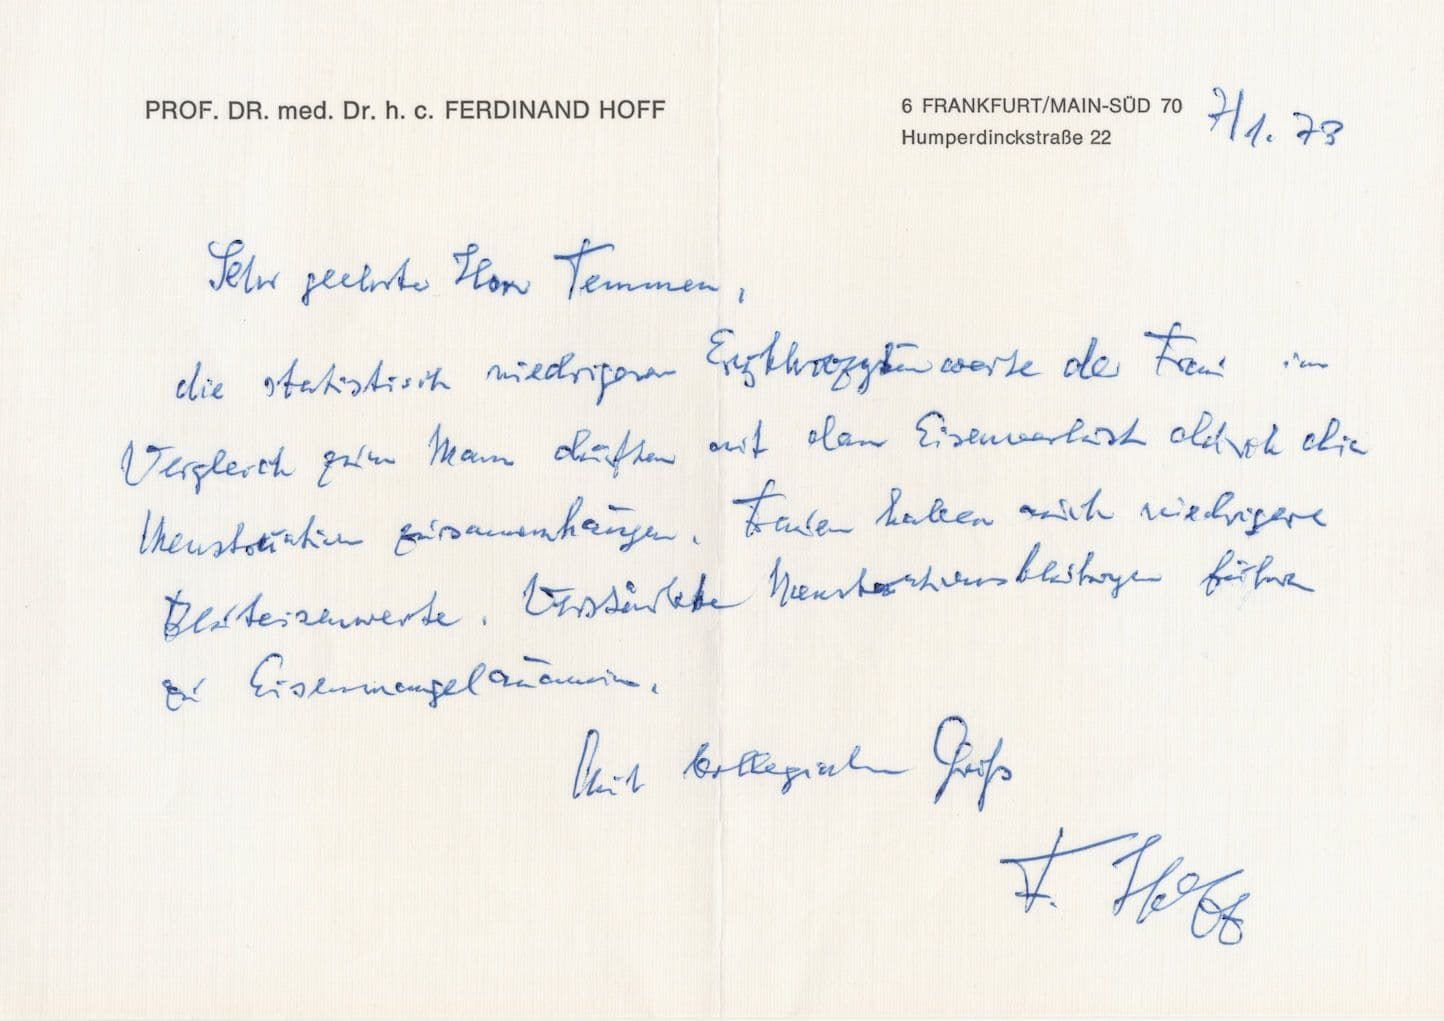 PROF. DR. med. Dr. h. c. FERDINAND HOFF
6 FRANKFURT/MAIN-SÜD 70
Humperdinckstraße 22
7/1. 73
Sehr geehrter Herr Temmen,
die statistisch niedrigeren Erythrozytenwerte der Frau im
Vergleich zum Mann dürften mit dem Eisenverlust durch die
Menstruation zusammenhängen. Frauen haben auch niedrigere
Bluteisenwerte. Verstärkte Menstruationsblutungen führen
zu Eisenmangelanämien.
Mit kollegialem Gruß
F. Hoff